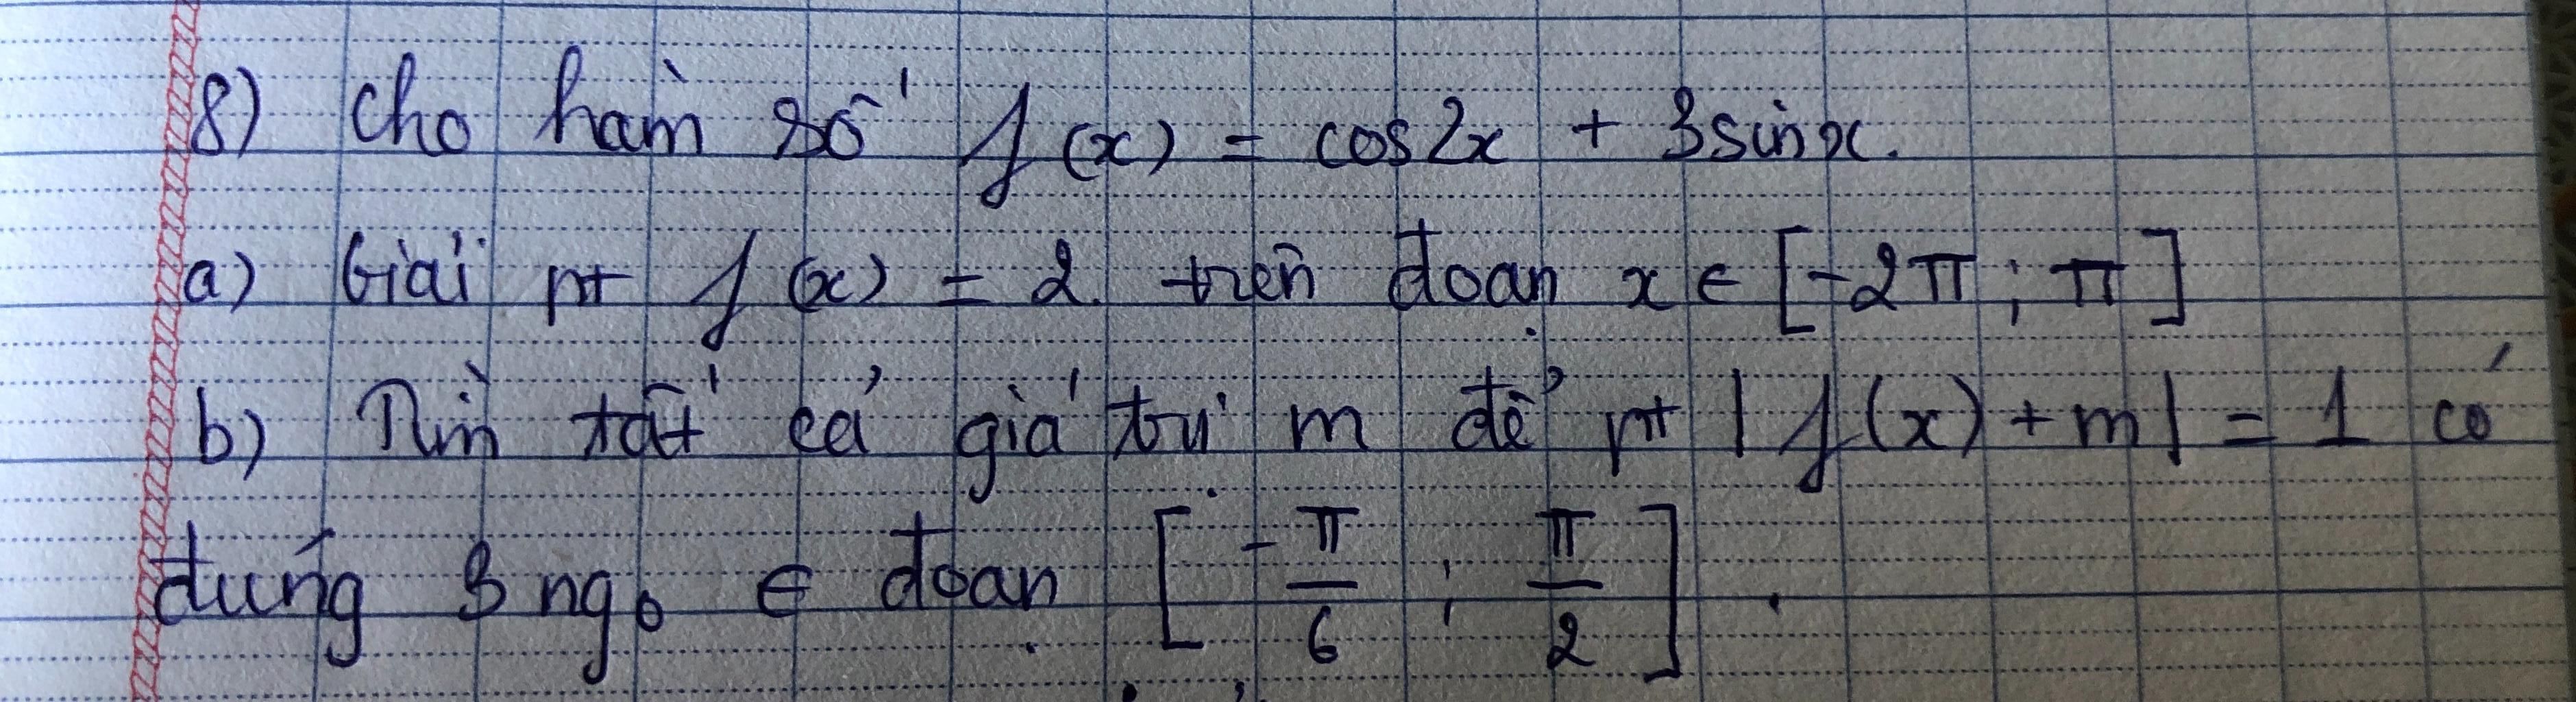 8) Cho hàm số f(x) = cos2x + 3sinx.
a) Giải pt f(x) = 2. trên đoạn x ∈ [-2π ; π]
b) Tìm tất cả giá trị m để pt |f(x) + m| = 1 có
đúng 3 ngo ∈ đoạn [-π/6 ; π/2].